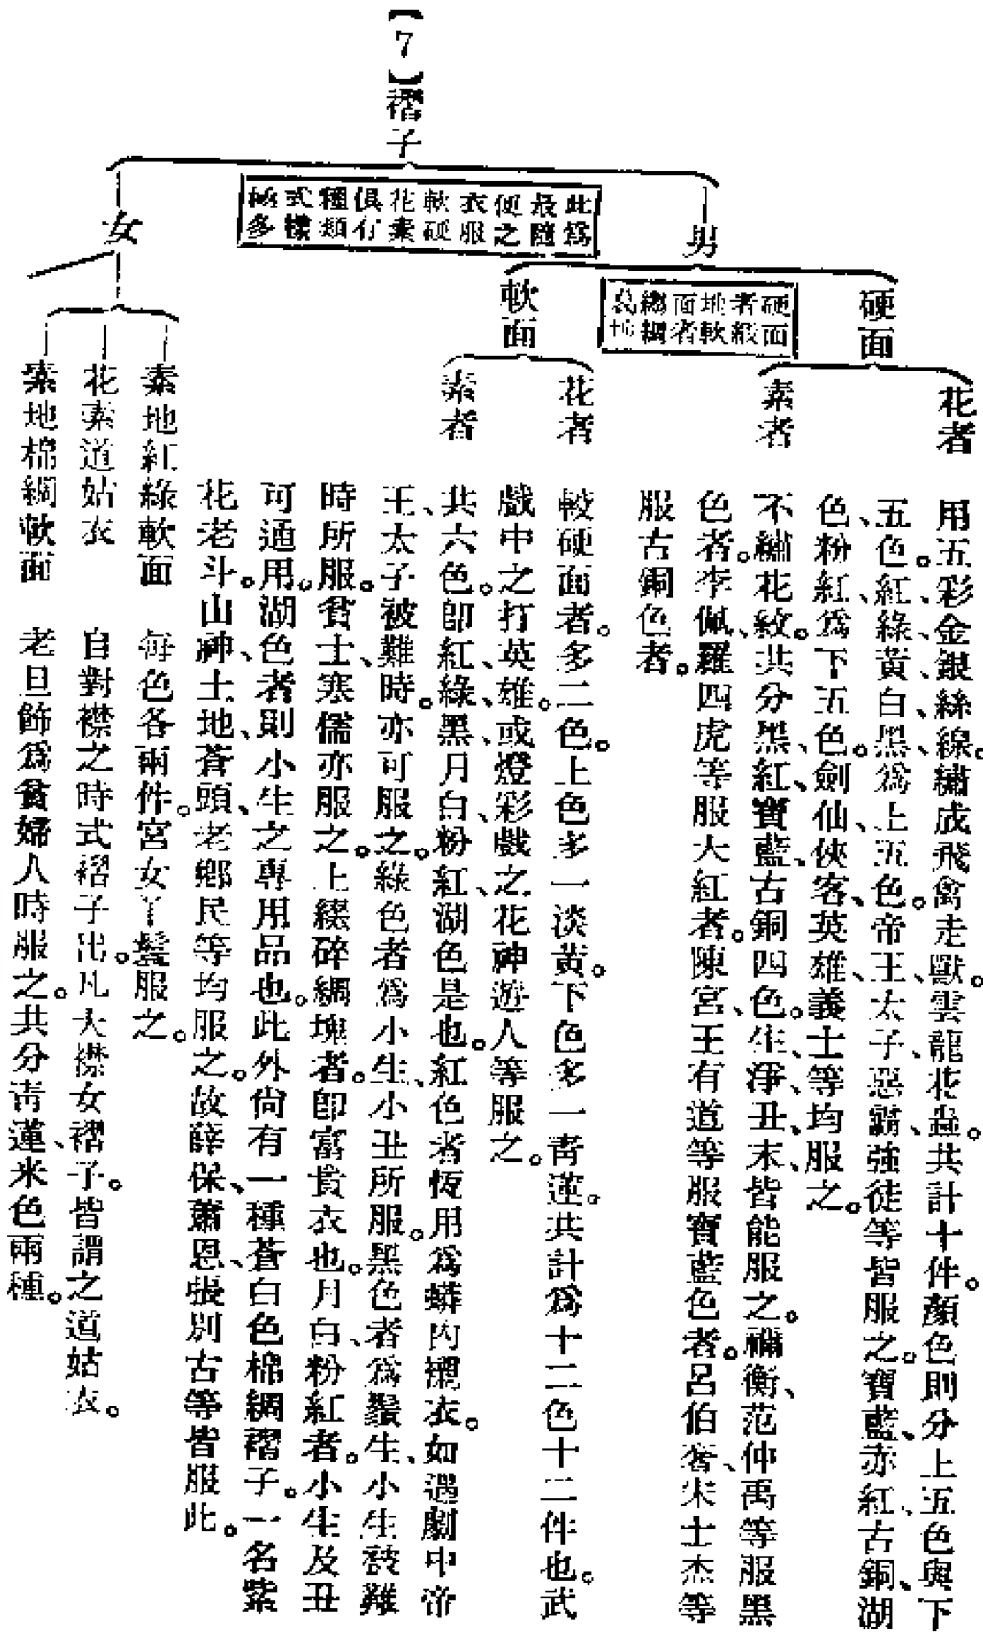 【7】褶子
此爲
最隨
便之
衣服
軟硬
花素
俱有
種類
式樣
極多
男
硬面
者緞
地軟
面者
縐綢
硬面
花者
用五彩金銀絲線。繡成飛禽走獸。雲龍花蟲。共計十件。顏色則分上五色與下
五色。紅、綠、黃、白、黑、爲上五色。帝王、太子、惡霸、強徒等皆服之。寶藍、赤紅、古銅、湖
色、粉紅、爲下五色。劍仙、俠客、英雄、義士等均服之。
素者
不繡花紋。共分黑、紅、寶藍、古銅四色。生、淨、丑、末、皆能服之。禰衡、范仲禹等服黑
色者。李佩、羅四虎等服大紅者。陳宮、王有道等服寶藍色者。呂伯奢、宋士杰等
服古銅色者。
軟面
花者
較硬面者。多二色。上色多一淡黃。下色多一青蓮。共計爲十二色十二件也。武
戲中之打英雄。或燈彩戲之花神、遊人等服之。
素者
共六色。卽紅、綠、黑、月白、粉紅、湖色是也。紅色者恆用爲蟒內襯衣。如遇劇中帝
王、太子被難時。亦可服之。綠色者爲小生、小丑所服。黑色者爲鬚生、小生被難
時所服。貧士、寒儒亦服之。上綴碎綢塊者。卽富貴衣也。月白、粉紅者。小生及丑
可通用。湖色者則小生之專用品也。此外尙有一種蒼白色棉綢褶子。一名紫
花老斗。山神、土地、蒼頭、老鄉民等均服之。故薛保、蕭恩、張別古等皆服此。
女
素地紅綠軟面
每色各兩件。宮女丫鬟服之。
花素道姑衣
自對襟之時式褶子出。凡大襟女褶子。皆謂之道姑衣。
素地棉綢軟面
老旦飾爲貧婦人時服之。共分靑蓮、米色兩種。